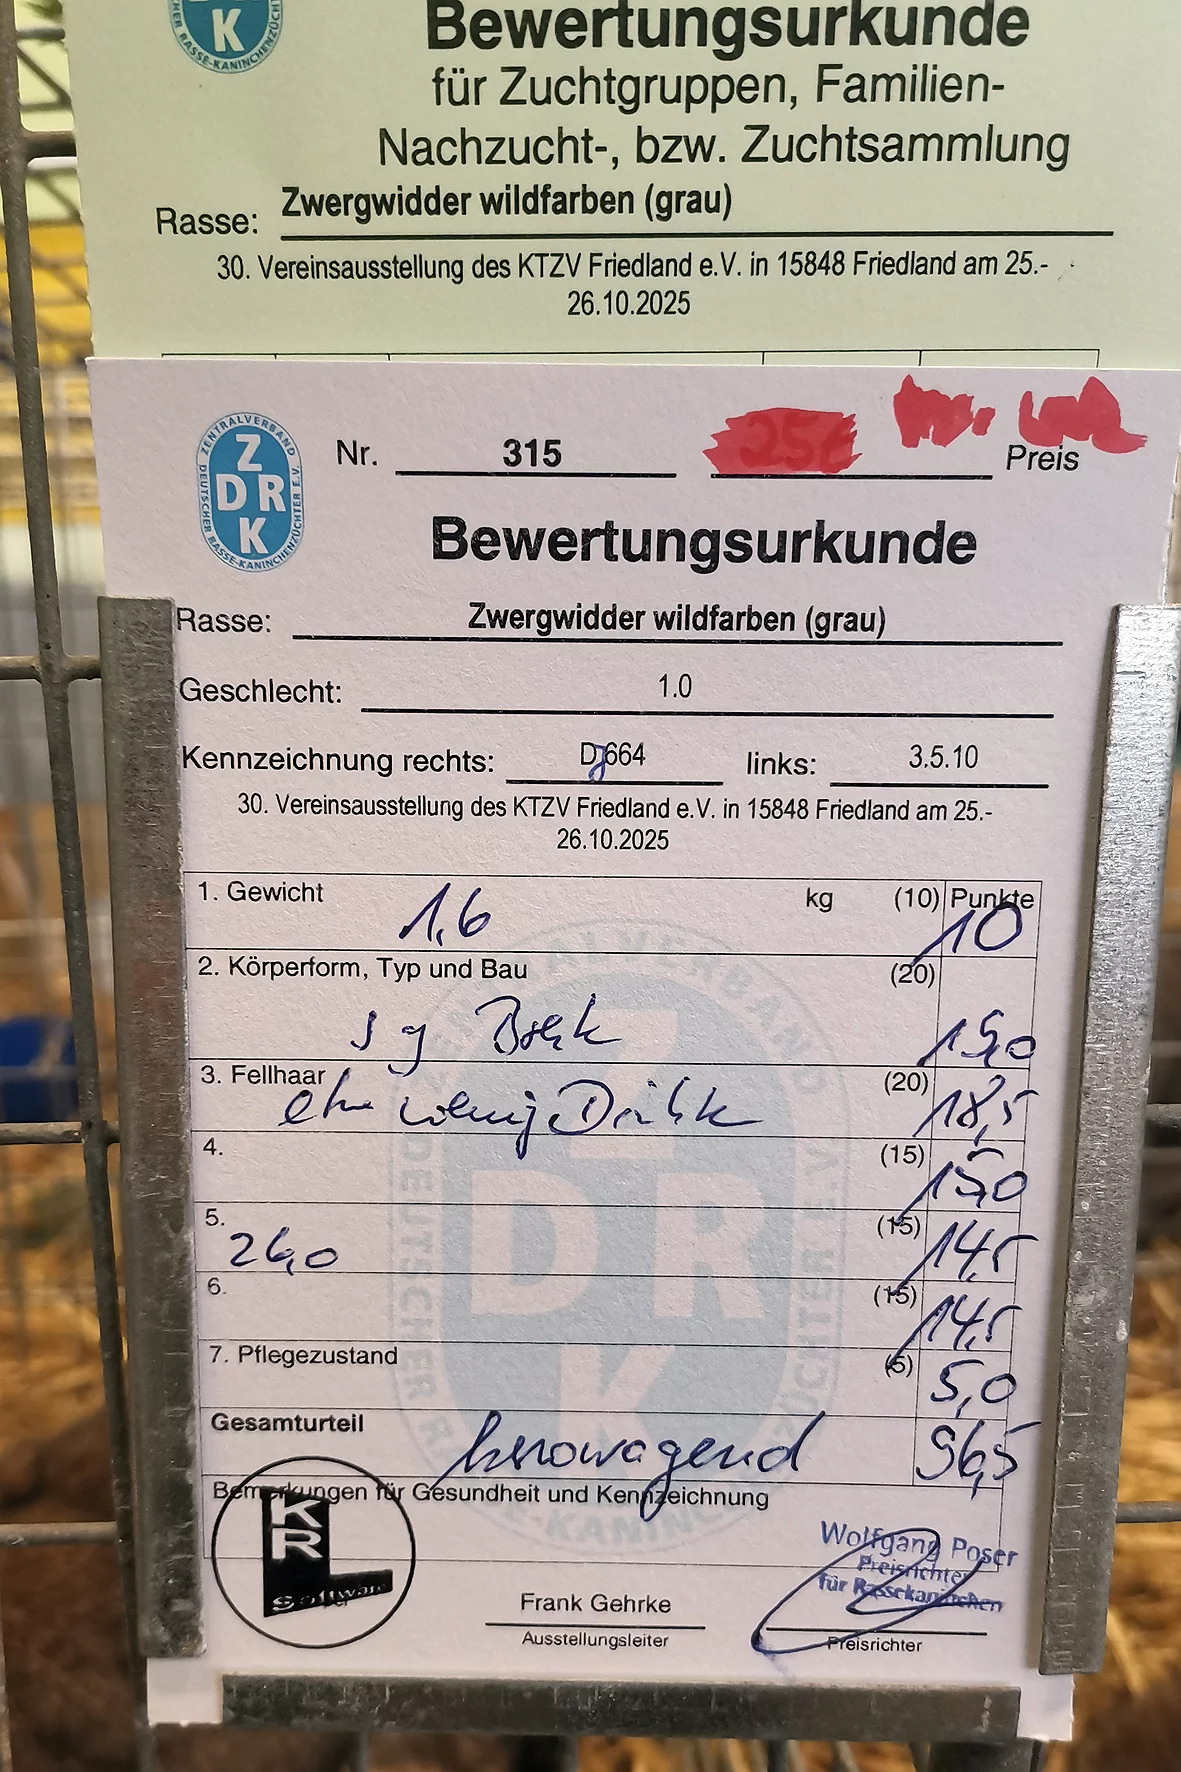 DRK
RASSE-KANINCHENZÜCHTER
Bewertungsurkunde
für Zuchtgruppen, Familien-
Nachzucht-, bzw. Zuchtsammlung
Rasse: Zwergwidder wildfarben (grau)
30. Vereinsausstellung des KTZV Friedland e.V. in 15848 Friedland am 25.-
26.10.2025
ZDRK
ZENTRALVERBAND DEUTSCHER RASSE-KANINCHENZÜCHTER E.V.
Nr. 315 25€ Preis
Bewertungsurkunde
Rasse: Zwergwidder wildfarben (grau)
Geschlecht: 1.0
Kennzeichnung rechts: Dj664 links: 3.5.10
30. Vereinsausstellung des KTZV Friedland e.V. in 15848 Friedland am 25.-
26.10.2025
1. Gewicht 1,6 kg (10) Punkte 10
2. Körperform, Typ und Bau (20)
sg 19,0
3. Fellhaar (20) 18,5
etw wenig Dichte
4. (15) 15,0
5. (15) 14,5
26,0
6. (15) 14,5
7. Pflegezustand (5) 5,0
Gesamturteil hervorragend 96,5
Bemerkungen für Gesundheit und Kennzeichnung
KRL Software
Wolfgang Poser
Preisrichter
für Rassekaninchen
Frank Gehrke
Ausstellungsleiter Preisrichter